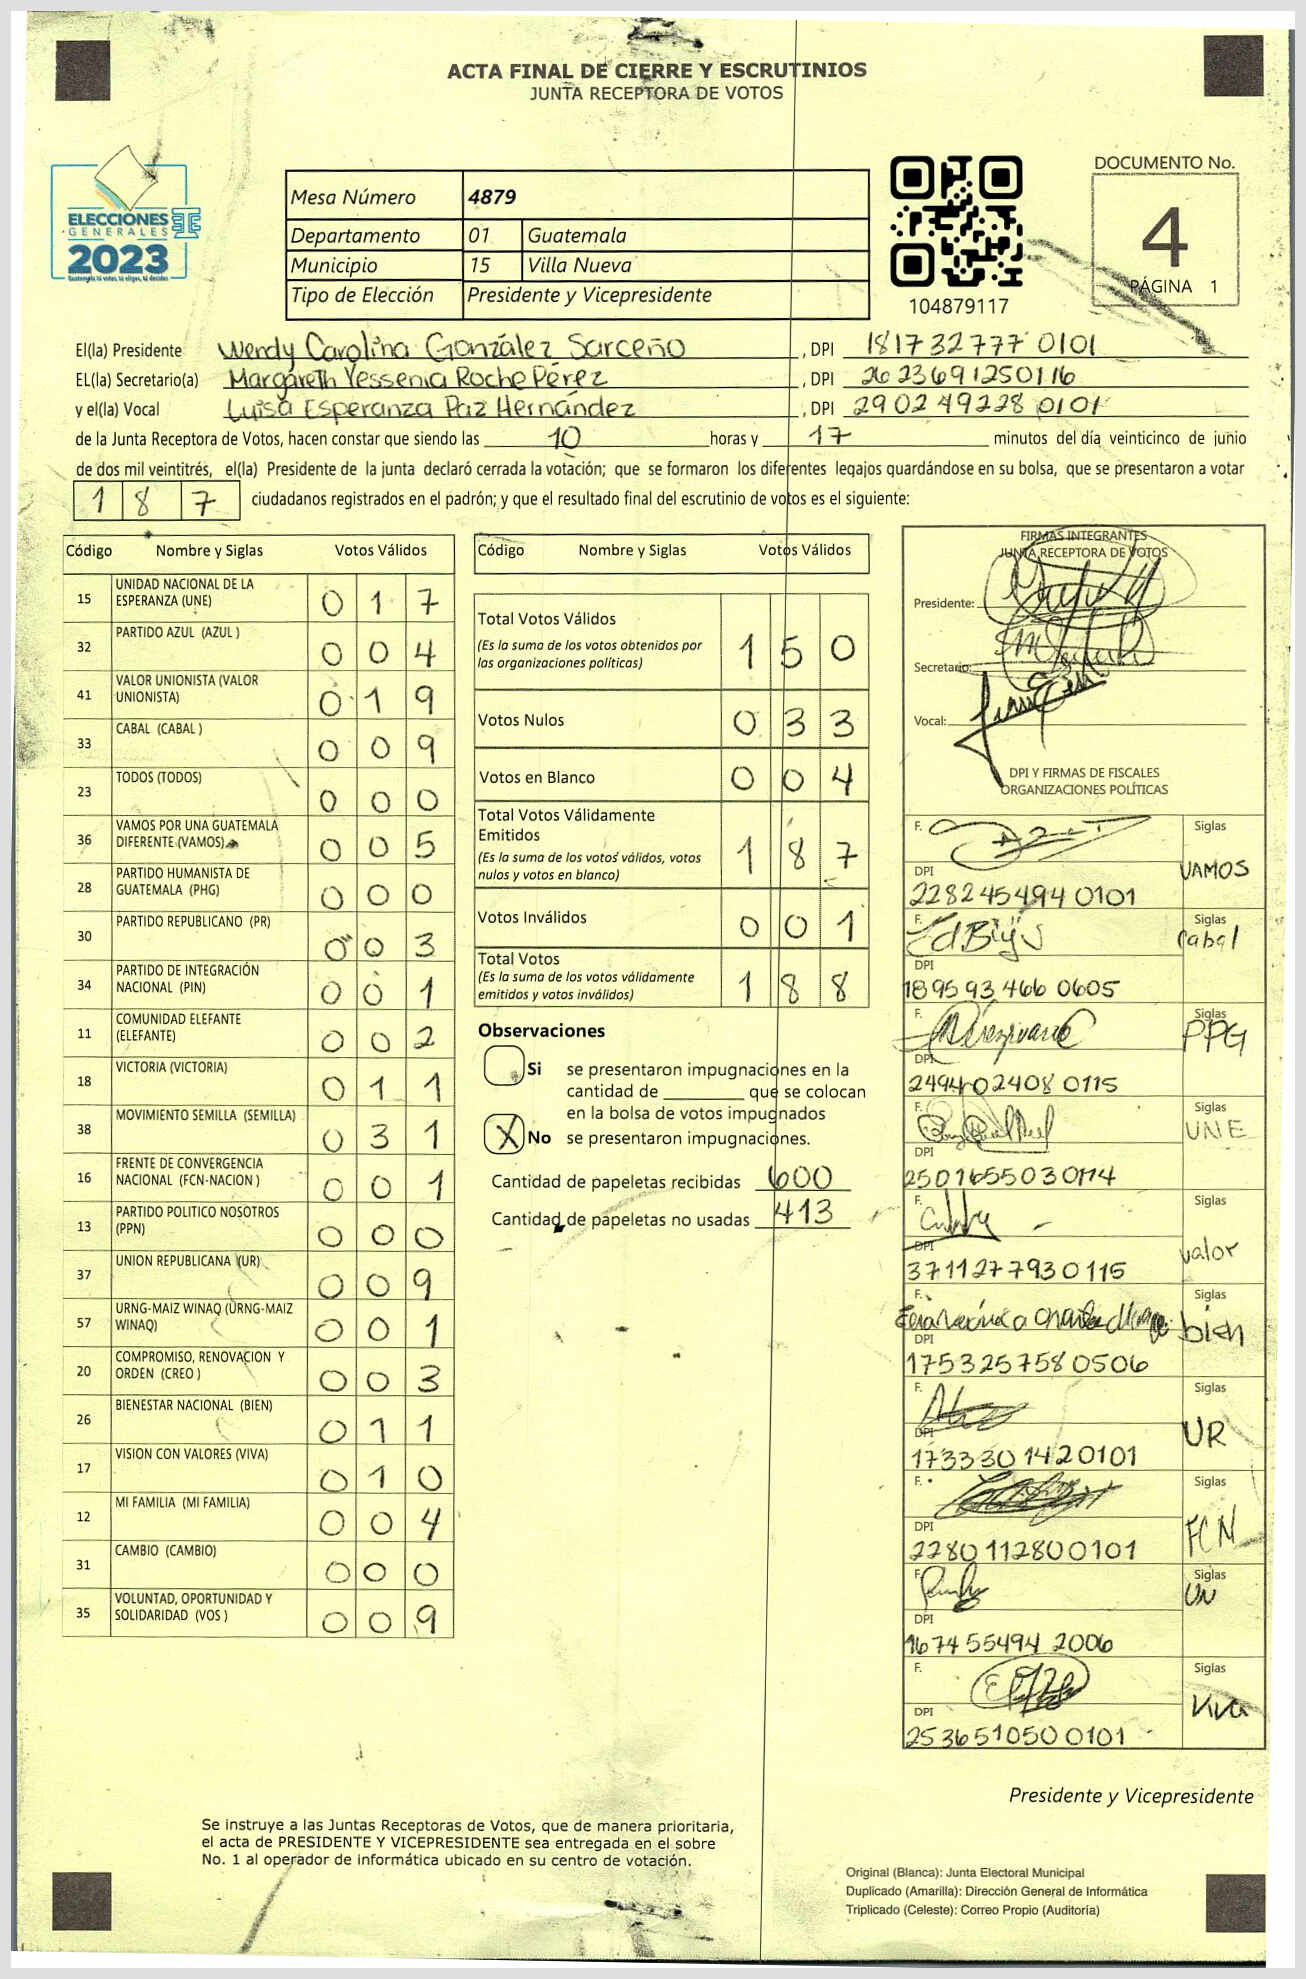 ACTA FINAL DE CIERRE Y ESCRUTINIOS
JUNTA RECEPTORA DE VOTOS
ELECCIONES
GENERALES
2023
Mesa Número 4879
Departamento 01 Guatemala
Municipio 15 Villa Nueva
Tipo de Elección Presidente y Vicepresidente
104879117
DOCUMENTO No.
4
PÁGINA 1
El(la) Presidente Wendy Carolina González Sarceño , DPI 181732777 0101
EL(la) Secretario(a) Margareth Yessenia Roche Pérez , DPI 2623691250116
y el(la) Vocal Luisa Esperanza Paz Hernández , DPI 290249228 0101
de la Junta Receptora de Votos, hacen constar que siendo las 10 horas y 17 minutos del día veinticinco de junio
de dos mil veintitrés, el(la) Presidente de la junta declaró cerrada la votación; que se formaron los diferentes legajos guardándose en su bolsa, que se presentaron a votar
187 ciudadanos registrados en el padrón; y que el resultado final del escrutinio de votos es el siguiente:
Código Nombre y Siglas Votos Válidos
15 UNIDAD NACIONAL DE LA ESPERANZA (UNE) 0 1 7
32 PARTIDO AZUL (AZUL ) 0 0 4
41 VALOR UNIONISTA (VALOR UNIONISTA) 0 1 9
33 CABAL (CABAL ) 0 0 9
23 TODOS (TODOS) 0 0 0
36 VAMOS POR UNA GUATEMALA DIFERENTE (VAMOS) 0 0 5
28 PARTIDO HUMANISTA DE GUATEMALA (PHG) 0 0 0
30 PARTIDO REPUBLICANO (PR) 0 0 3
34 PARTIDO DE INTEGRACIÓN NACIONAL (PIN) 0 0 1
11 COMUNIDAD ELEFANTE (ELEFANTE) 0 0 2
18 VICTORIA (VICTORIA) 0 1 1
38 MOVIMIENTO SEMILLA (SEMILLA) 0 3 1
16 FRENTE DE CONVERGENCIA NACIONAL (FCN-NACION ) 0 0 1
13 PARTIDO POLITICO NOSOTROS (PPN) 0 0 0
37 UNION REPUBLICANA (UR) 0 0 9
57 URNG-MAIZ WINAQ (URNG-MAIZ WINAQ) 0 0 1
20 COMPROMISO, RENOVACION Y ORDEN (CREO ) 0 0 3
26 BIENESTAR NACIONAL (BIEN) 0 1 1
17 VISION CON VALORES (VIVA) 0 1 0
12 MI FAMILIA (MI FAMILIA) 0 0 4
31 CAMBIO (CAMBIO) 0 0 0
35 VOLUNTAD, OPORTUNIDAD Y SOLIDARIDAD (VOS ) 0 0 9
Código Nombre y Siglas Votos Válidos
Total Votos Válidos 1 5 0
(Es la suma de los votos obtenidos por
las organizaciones políticas)
Votos Nulos 0 3 3
Votos en Blanco 0 0 4
Total Votos Válidamente
Emitidos 1 8 7
(Es la suma de los votos válidos, votos
nulos y votos en blanco)
Votos Inválidos 0 0 1
Total Votos 1 8 8
(Es la suma de los votos válidamente
emitidos y votos inválidos)
Observaciones
Si se presentaron impugnaciones en la
cantidad de ________ que se colocan
en la bolsa de votos impugnados
X No se presentaron impugnaciones.
Cantidad de papeletas recibidas 600
Cantidad de papeletas no usadas 413
FIRMAS INTEGRANTES
JUNTA RECEPTORA DE VOTOS
Presidente:
Secretario:
Vocal:
DPI Y FIRMAS DE FISCALES
ORGANIZACIONES POLÍTICAS
F. Siglas
DPI VAMOS
228245494 0101
F. Siglas
DPI Cabal
189593466 0605
F. Siglas
DPI PPG
249402408 0115
F. Siglas
DPI UNE
F. Siglas
DPI valor
3711277930115
F. Siglas
DPI bien
175325758 0506
F. Siglas
DPI UR
1733301420101
F. Siglas
DPI FCN
2280112800101
F. Siglas
DPI UN
167455494 2006
F. Siglas
DPI Viva
253651050 0101
Presidente y Vicepresidente
Se instruye a las Juntas Receptoras de Votos, que de manera prioritaria,
el acta de PRESIDENTE Y VICEPRESIDENTE sea entregada en el sobre
No. 1 al operador de informática ubicado en su centro de votación.
Original (Blanca): Junta Electoral Municipal
Duplicado (Amarilla): Dirección General de Informática
Triplicado (Celeste): Correo Propio (Auditoría)